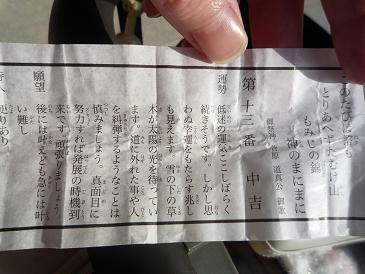 このたびは幣も
とりあへず手向け山
もみじの錦
神のまにまに
御祭神 菅原 道真公 御歌
第十三番 中吉
運勢 低迷の運気ここしばらく
続きそうです。しかし思
わぬ幸運をもたらす兆し
も見えます。雪の下の草
木が太陽の光を待ってい
ます。道に外れた事や人
を糾弾するようなことは
慎みましょう。真面目に
努力すれば発展の時機到
来です。頑張りましょう。
願望 後には叶えども急には叶
い難し
便りあり